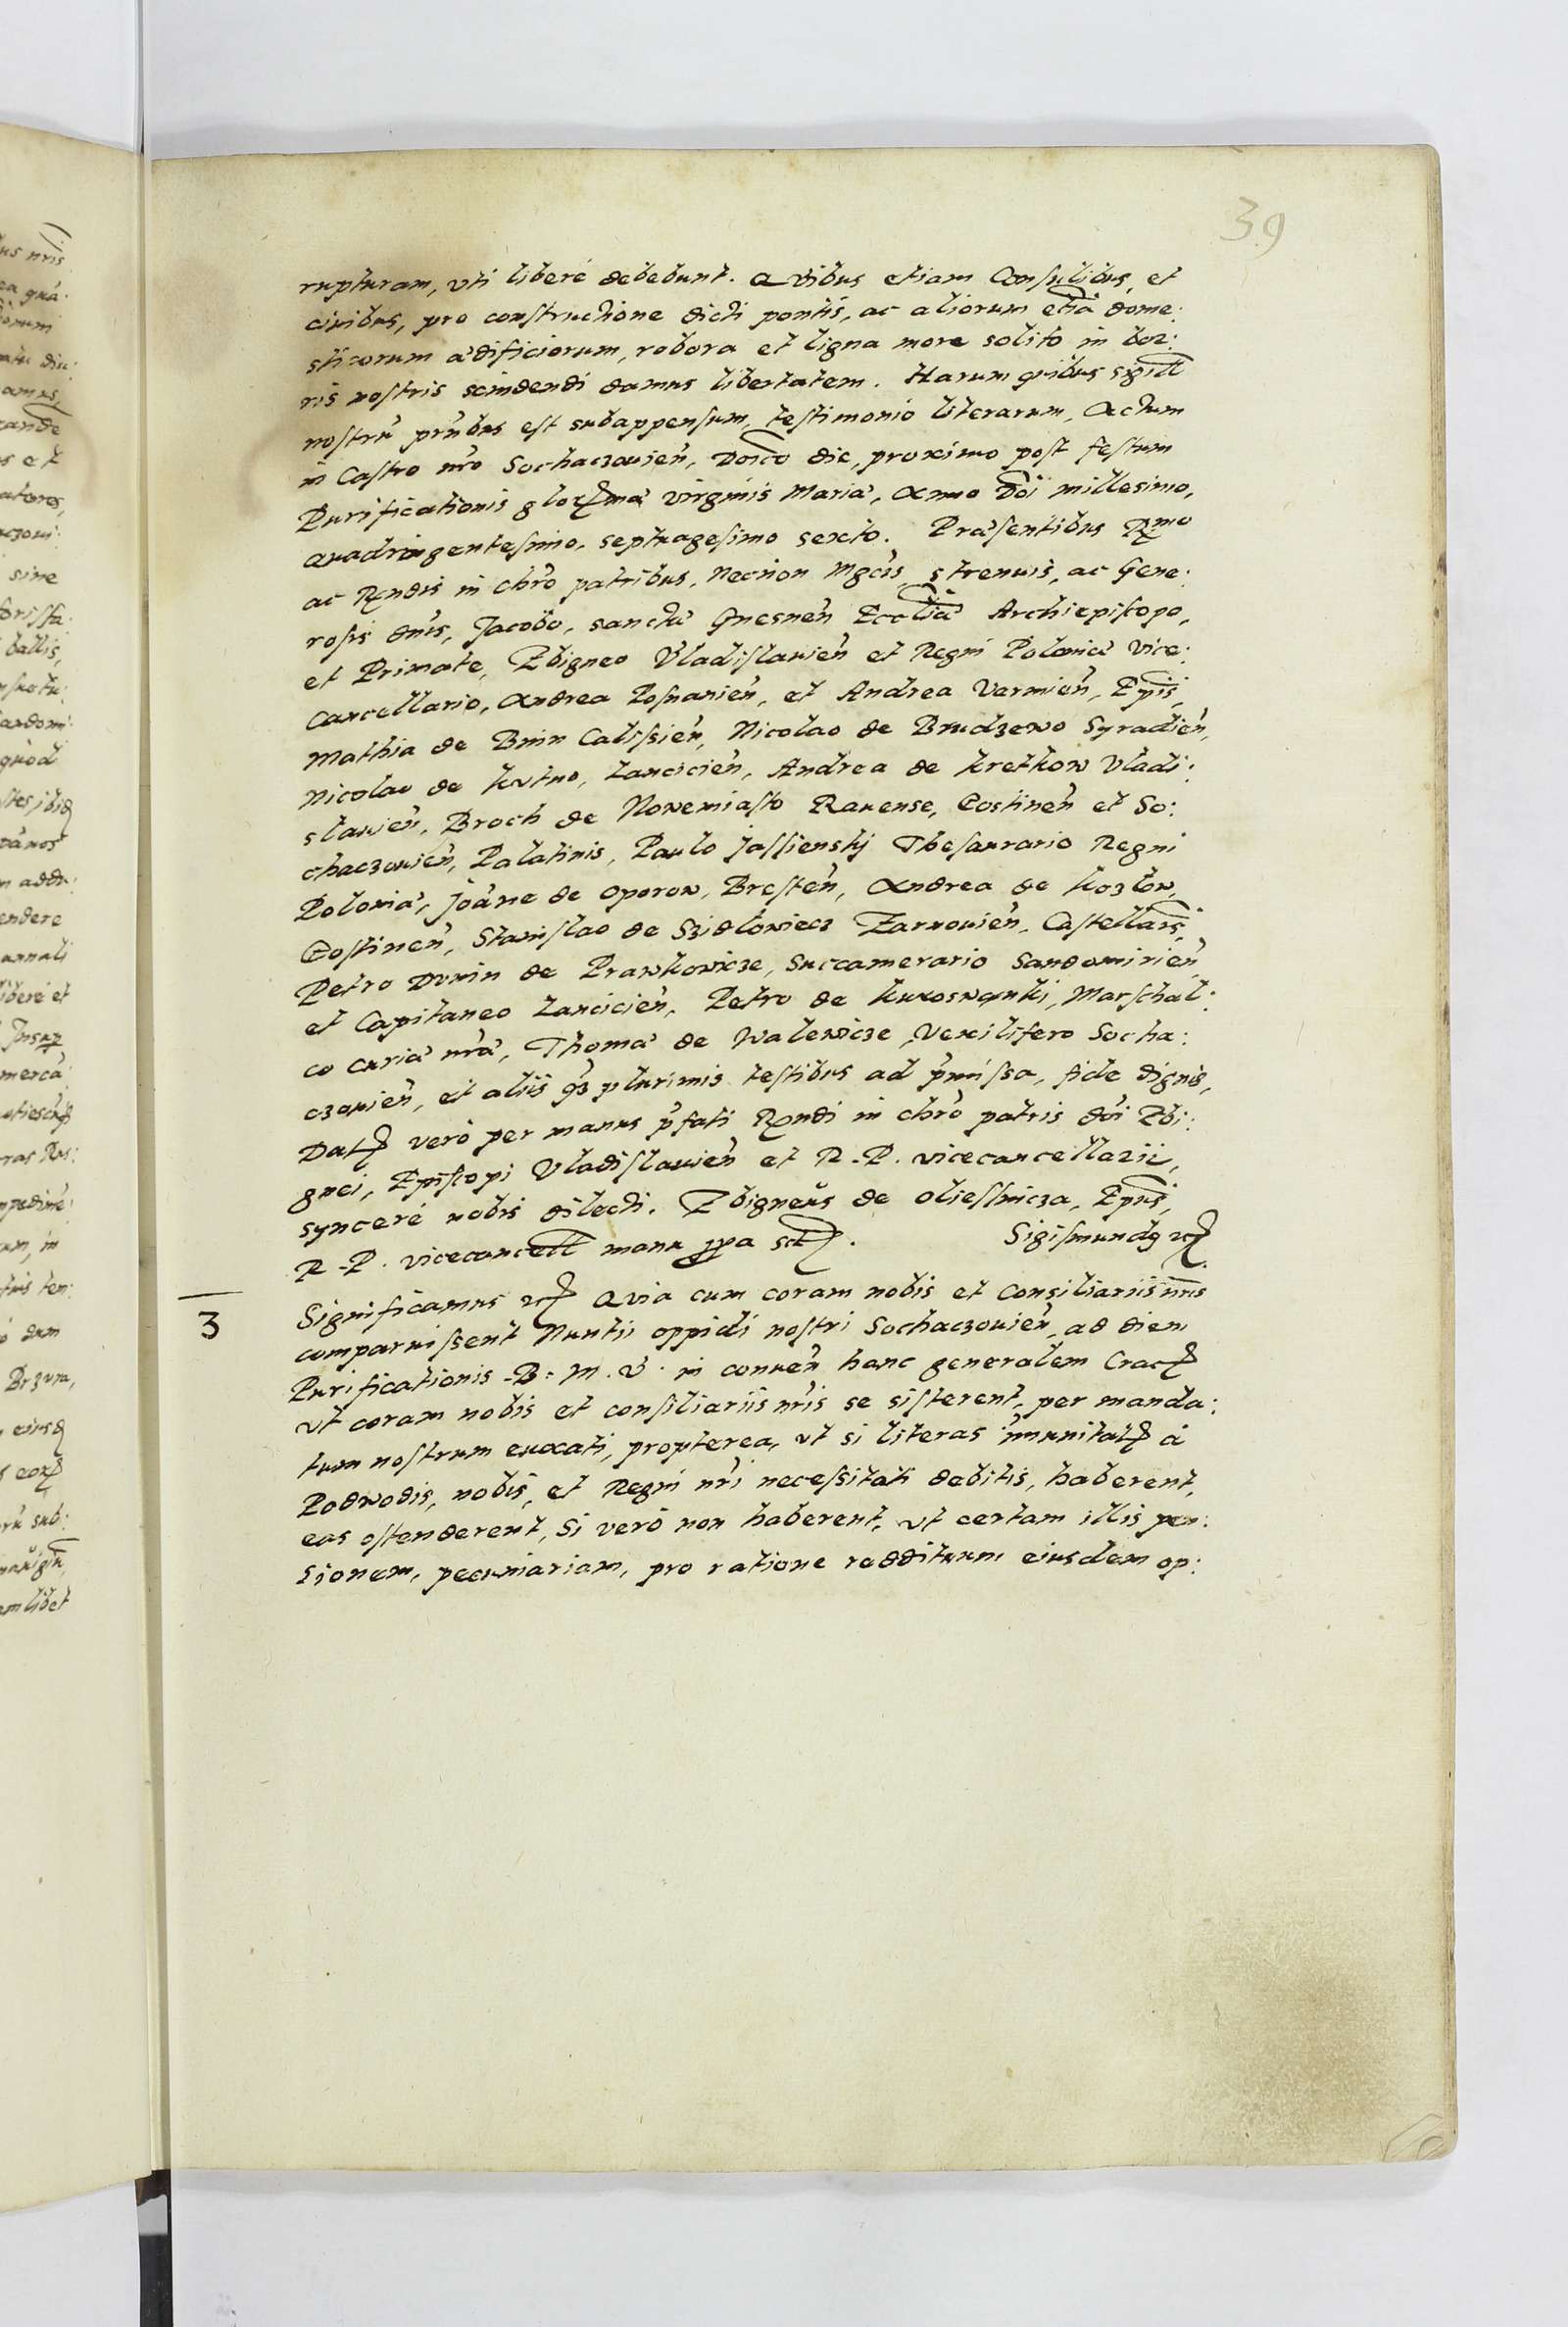 39
rupturam, vti liberè debebunt. Quibus etiam Consulibus, et
ciuibus, pro constructione dicti pontis, ac aliorum etiã dome:
sticorum ædificiorum, robora et ligna more solito in bor:
ris nostris scindendi damus libertatem. Harum quibus sigill
nostrũ pñtibus est subappensum, testimonio literarum, Actum
in Castro nrõ Sochaczouieñ, Doico die, proximo post festum
Purificationis glo mæ virginis Mariæ, Anno Doĩ millesimo,
quadringentesimo, septuagesimo sexto. Præsentibus Rmo
ac Rndis in chrõ patribus, Necnon Mgcis, strenuis, ac Gene:
rosis dnis, Jacobo, sanctæ Gnesneñ Eccliæ Archiepiscopo,
et Primate, Zbigneo Vladislauieñ et Regni Poloniæ Vice:
Cancellario, Andrea Posnanieñ, et Andrea Varmieñ, Epis,
Mathia de Bnin Calissieñ, Nicolao de Brudzewo Syradieñ,
Nicolao de Kutno, Lancicieñ, Andrea de Kretkow Vladi:
slauieñ, Broch de Nowemiasto Rauense, Gostineñ et So:
chaczouieñ, Palatinis, Paulo Jassienskj Thesaurario Regni
Poloniæ, Joãne de Oporow, Bresteñ, Andrea de Kozlow,
Gostineñ, Stanislao de Szidlowiecz Zarnouieñ, Castellanis,
Petro Dunin de Prawkowicze, Succamerario Sandomirieñ
et Capitaneo Lancicieñ, Petro de Kuroswanki, Marschal:
co curiæ nræ, Thoma de Walewicze, Vexilifero Socha:
czouieñ, et aliis q̃ȝ plurimis testibus ad p̃missa, fide dignis,
Dat verò per manus p̃fati Rndi in chrõ patris dõi Zbi:
gnei, Episcopi Vladislauieñ et R. P. vicecancellarii,
syncerè nobis dilecti. Zbigneus de Oliesnicza, Epus,
R. P. vicecancell manu ppa sct. Sigismundꝯ etc
3
Significamus etc Quia cum coram nobis et Consiliariis nris
comparuissent Nuntii oppidi nostri Sochaczouieñ, ad diem
Purificationis B. M. V. in conueñ hanc generalem Crac
Vt coram nobis et consiliariis nris se sisterent, per manda:
tum nostrum euocati, propterea, vt si literas im̃unitat à
Podwodis, nobis, et Regni nri necessitati debitis, haberent,
eas ostenderent, Si verò non haberent, vt certam illis pen:
sionem, pecuniariam, pro ratione reddituum eiusdem op: